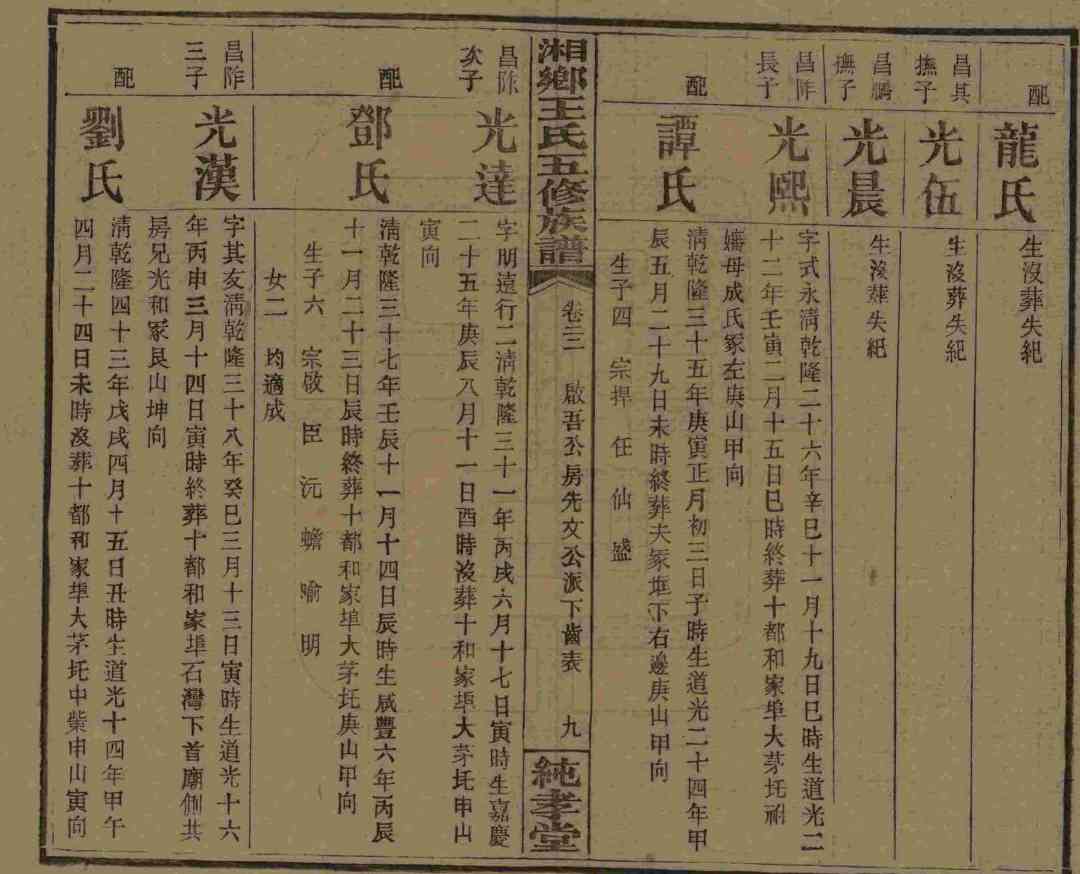 配
龍氏
生沒葬失紀
昌其
撫子
光伍
生沒葬失紀
昌鵬
撫子
光晨
生沒葬失紀
昌阼
長子
光熙
字式永清乾隆二十六年辛巳十一月十九日巳時生道光二
十二年壬寅二月十五日巳時終葬十都和家埠大茅圫祔
嬸母成氏冢左庚山甲向
配
譚氏
清乾隆三十五年庚寅正月初三日子時生道光二十四年甲
辰五月二十九日未時終葬夫冢堆下右邊庚山甲向
生子四 宗捍 任 仙 盛
湘鄉王氏五修族譜
卷三二 啟吾公房先文公派下齒表 九
純孝堂
昌阼
次子
光達
字明遠行二清乾隆三十一年丙戌六月十七日寅時生嘉慶
二十五年庚辰八月十一日酉時沒葬十和家埠大茅圫申山
寅向
配
鄧氏
清乾隆三十七年壬辰十一月十四日辰時生咸豐六年丙辰
十一月二十三日辰時終葬十都和家埠大茅圫庚山甲向
生子六 宗敬 臣 沅 蟾 喻 明
女二 均適成
昌阼
三子
光漢
字其友清乾隆三十八年癸巳三月十三日寅時生道光十六
年丙申三月十四日寅時終葬十都和家埠石灣下首廟側共
房兄光和冢艮山坤向
配
劉氏
清乾隆四十三年戊戌四月十五日丑時生道光十四年甲午
四月二十四日未時沒葬十都和家埠大茅圫中柴申山寅向